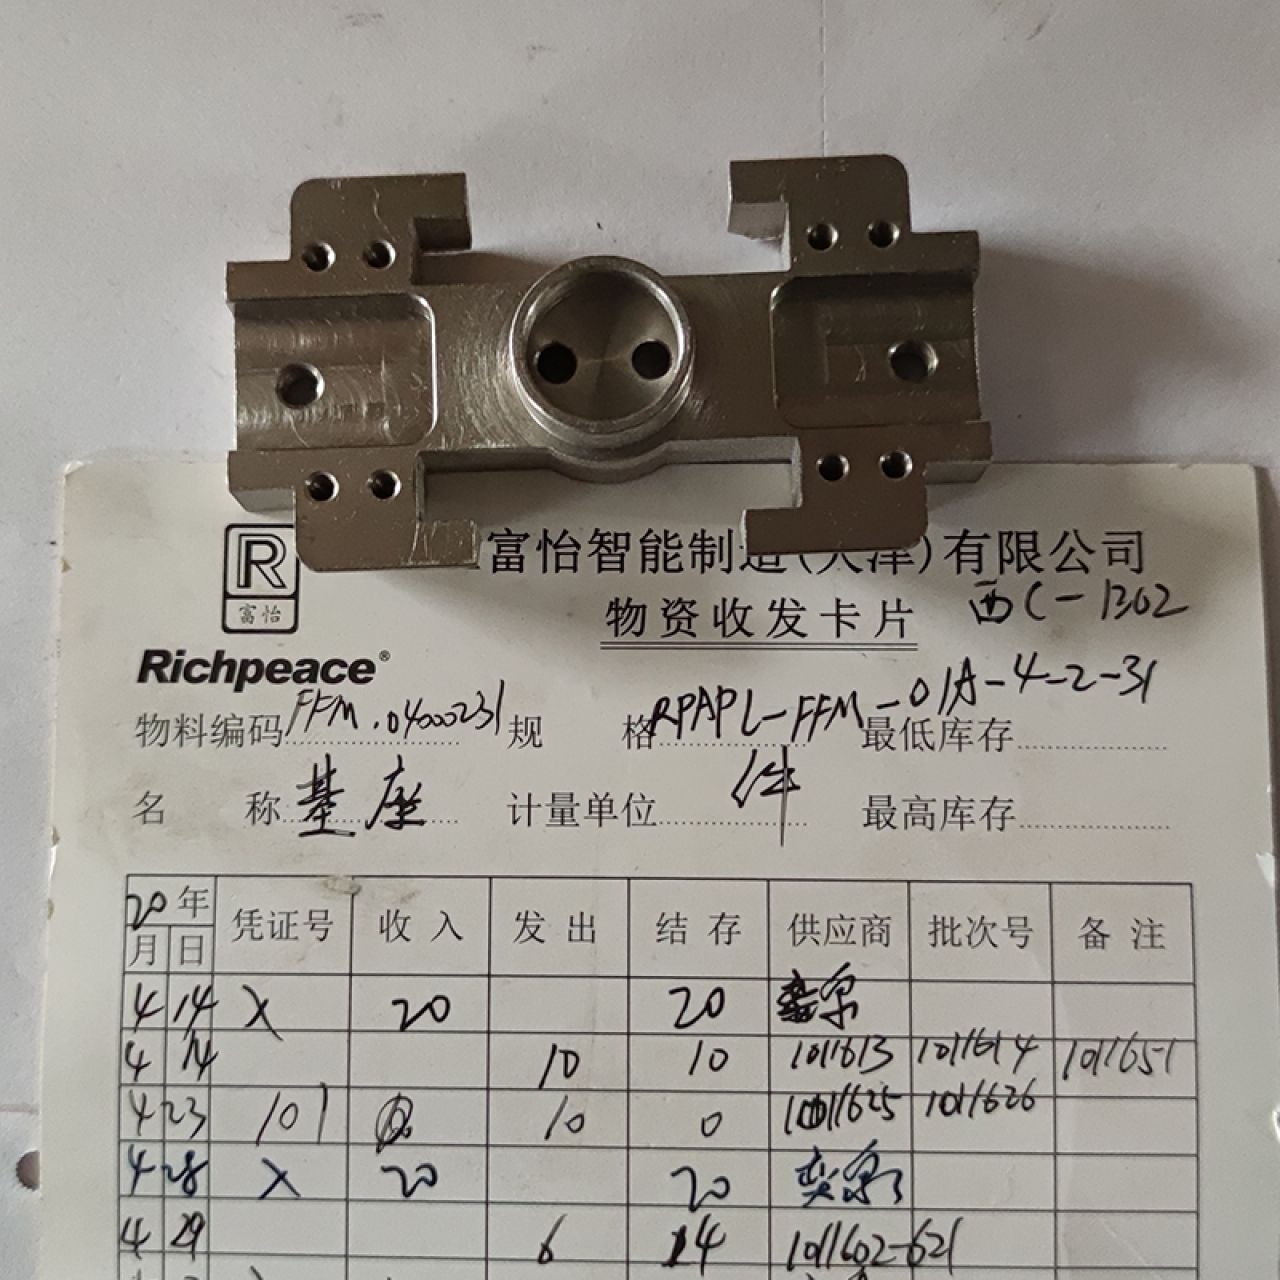 R
富怡
富怡智能制造(天津)有限公司
西C-1302
物资收发卡片
Richpeace®
物料编码 FFM.04000231 规格 RPAPL-FFM-01A-4-2-31 最低库存
名称 基座 计量单位 件 最高库存
20年 凭证号 收入 发出 结存 供应商 批次号 备注
月 日
4 14 入 20 20
4 14 10 10 1011613 1011614 1011651
4 23 101 10 0 1011625 1011626
4 28 入 20 20
4 29 6 14 1011602-621